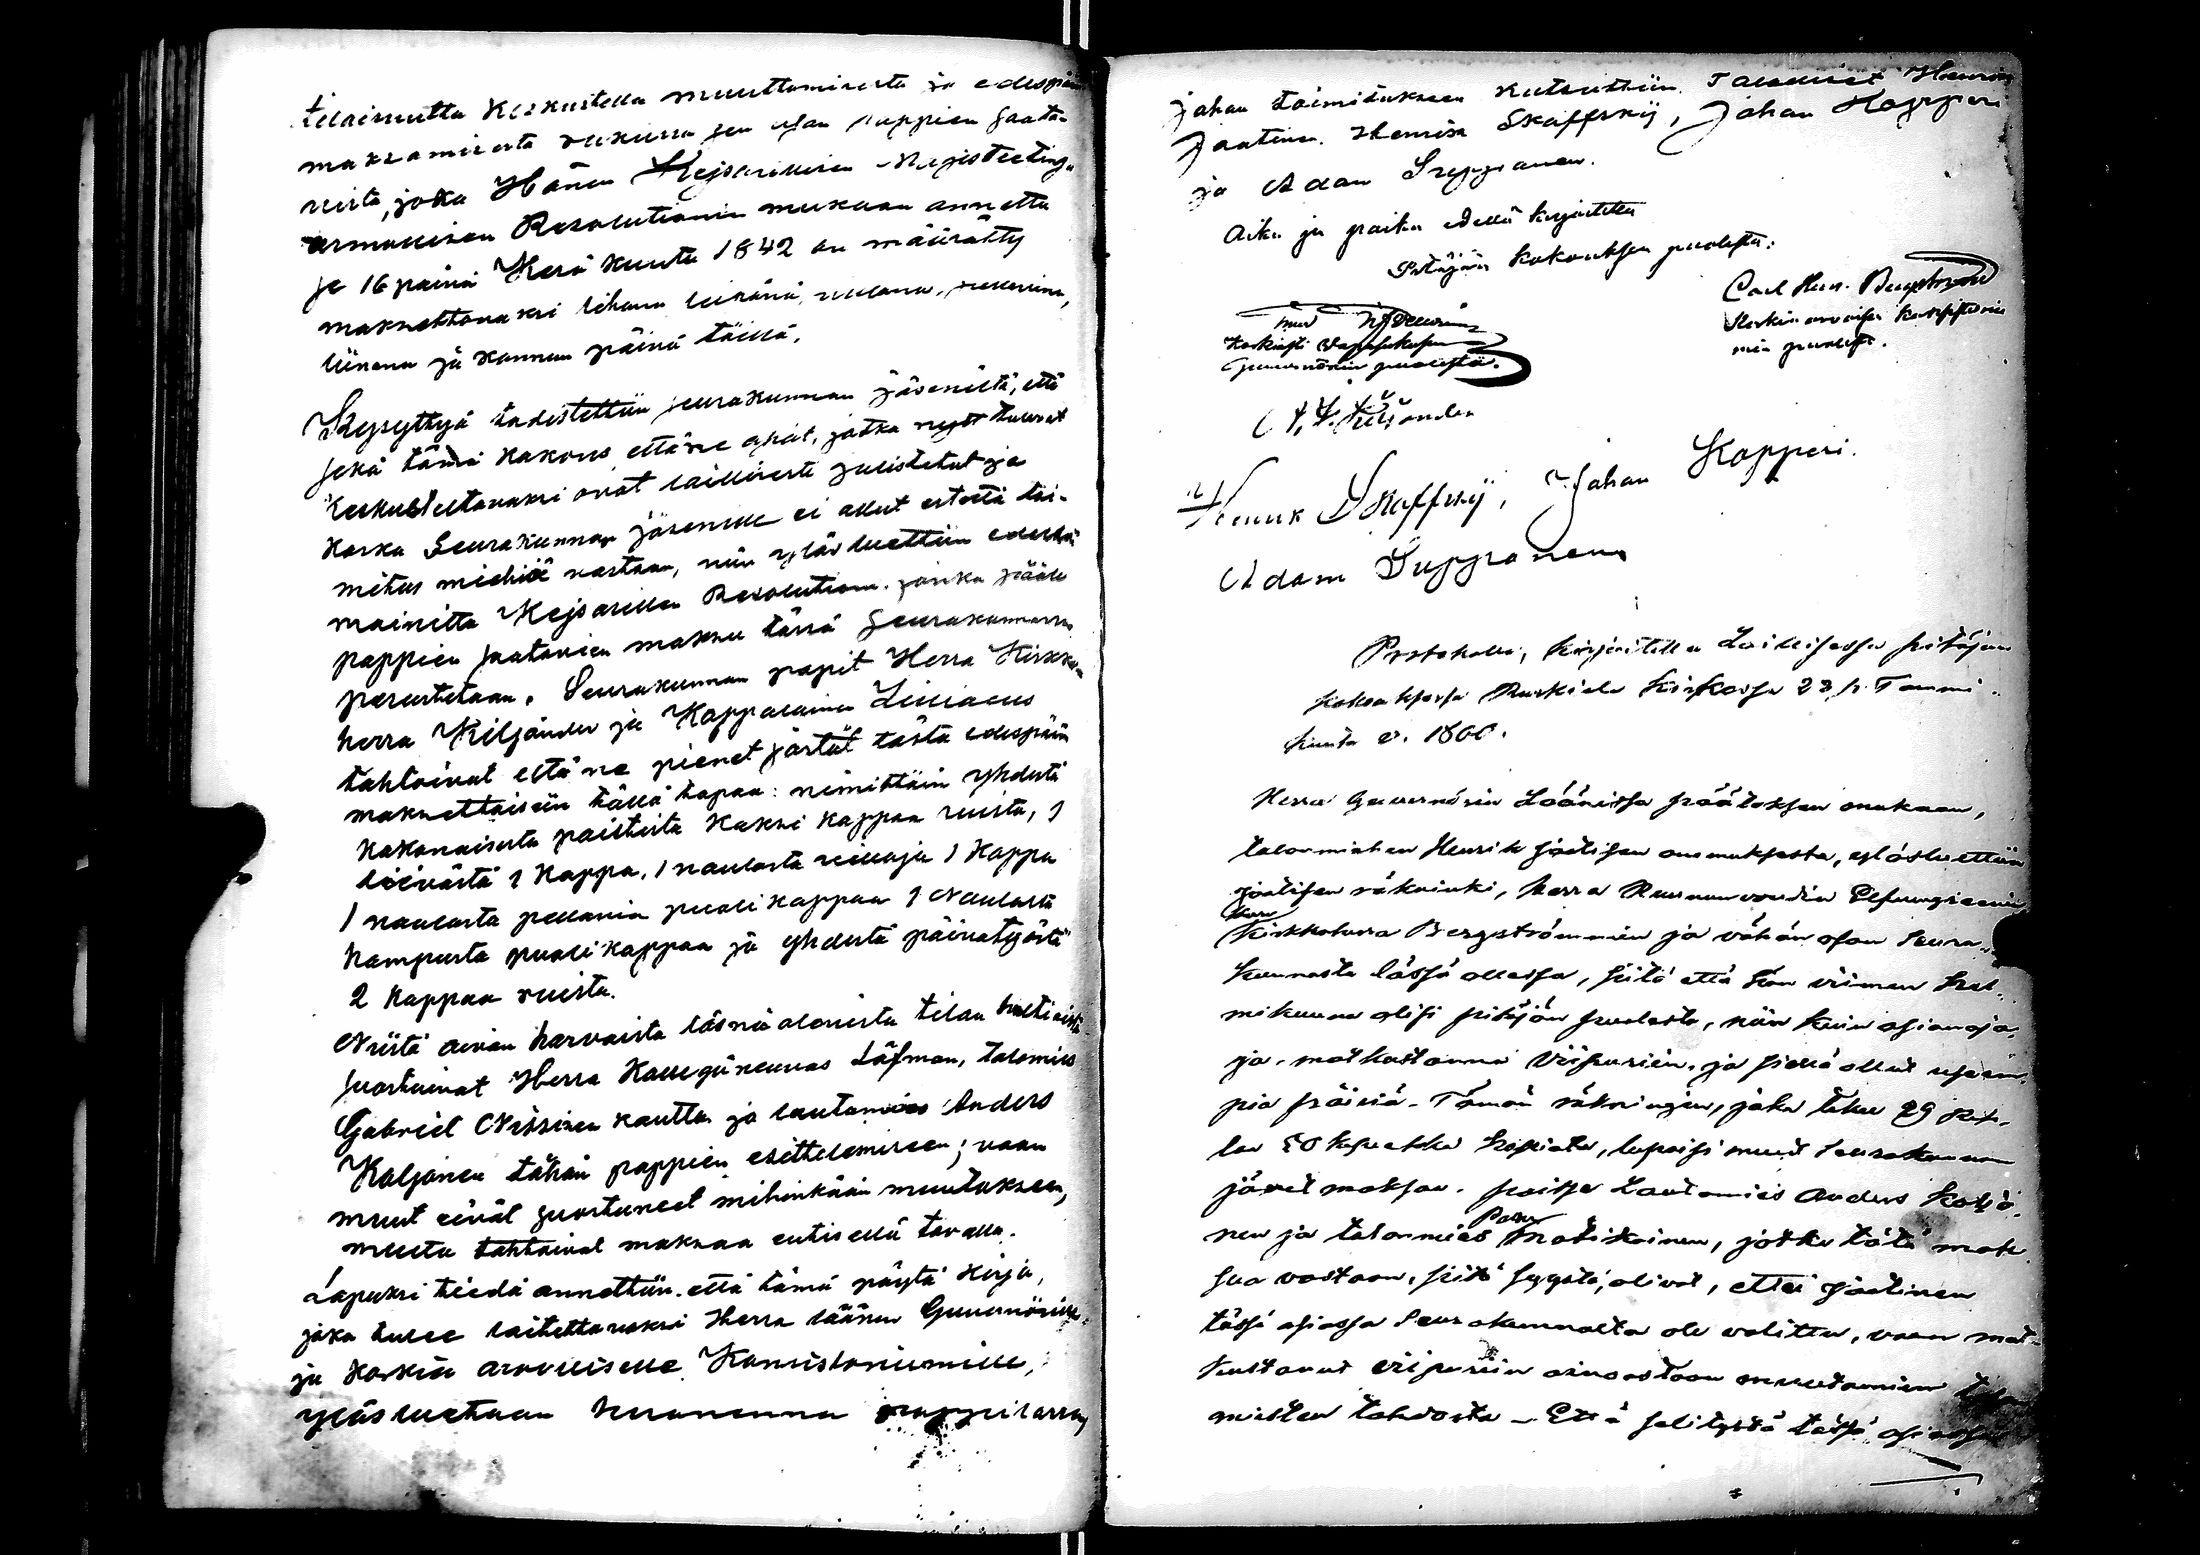 tilaisuutta keskustella muuttamisesta ja edespäin
maksamisesta rukiissa sen osan pappien saata-
vista, joka Hänen Kejsarillisen Majesteetin
armollisen Resolutionin mukaan annettu
se 16 päivä Kesä kuuta 1842 on määrätty
maksettavaksi lihana leikänä, villana,
liinana ja kannun päivä töillä.
Kysyttyä todistettiin seurakunnan jäseniltä, että
sekä tämä kokous että ne asiat, jotka nyt tulevat
keskusteltavaksi ovat laillisesti julistetut ja
koska Seurakunnan jäsenille ei ollut estettä toi-
mitus miehiä vastaan, niin ylös luettiin edellä
mainittu Kejsarillen Resolutioni. jonka pääle
pappien saatavien maksu tässä Seurakunnassa
perustetaan. Seurakunnan papit Herra Kirkko
herra Kiljander ja Kappalainen Lilliaeus
tahtoivat että ne pienet jästit tästä edespäin
maksettaisiin tällä tapaa: nimittäin yhdestä
kokonaisesta paistista kaksi kappaa ruista, 1
leivästä 1 kappa, 1 naulasta villoja 1 kappa
1 naulasta pellavia puoli kappaa 1 Naulasta
hampusta puoli kappaa ja yhdestä päivätyöstä
2 kappaa ruista.
Niistä aivan harvoista läsnä olevista tilan haltioista
suostuivat Herra Läfman, talomies
Gabriel Nissisen kautta ja lautamies Anders
Koljonen tähän pappien esittelemiseen; vaan
muut eivät suostuneet mihinkään muutokseen,
mutta tahtoivat maksaa entisellä tavalla.
Lopuksi tiedä annettiin että tämä pöytä kirja,
joka tulee laitettavaksi Herra läänin Guvernörille
ja korkia arvolliselle Konsistoriumille,
ylösluetaan huomenna pappilassa,
johan toimitukseen kutsuttiin Talolliset Henrik
Jaatinen. Henrik Skaffskij, Johan Kopperi
ja Adam Seppanen.
Aika ja paika edellä kirjoitettu
Pitäjän kokouksen puolesta:
Carl Hen. Bergström
Korkia arvoisen Konsistoriu
min puolesta.
Guvernörin puolesta.
Henrik Skaffskij, Johan Kopperi.
Adam Seppanen
Protokolla, kirjoitettu Laillisessa pitäjän
kokouksessa Ruskiala Kirkossa 23 p. Tammi-
kuuta v. 1860.
Herra Guvernörin Läänissä päätöksen mukaan,
talonmiehen Henrik Jaatisen anomuksesta, ylösluettiin
Jaatisen räkninki, herra Ruununvoudin Elfvingienin
herra
Kirkkoherra Bergströmmin ja vähän osan Seura-
kunnasta läsnä ollessa, siitä että hän viimen hel-
mikuuna olisi pitäjän puolesta, niin kuin asianaja-
ja, matkustanna Viipuriin, ja siellä ollut useam-
pia päiviä. Tämän räkningin, joka tekee 29 rup-
laa 50 kopekkaa hopiata, lupaisi muut Seurakunnan
jäsenet maksaa, paitse Lautamies Anders Koljo-
nen ja talonmies Matikainen, jotka tätä mak-
sua vastaan, siitä syystä, olivat, ettei Jaatinen
tässä asiassa Seurakunnalta ole valittu, vaan mat-
kustanut Viipuriin ainoastaan muutamien
miesten tahdosta — Että selitystä tässä asiassa